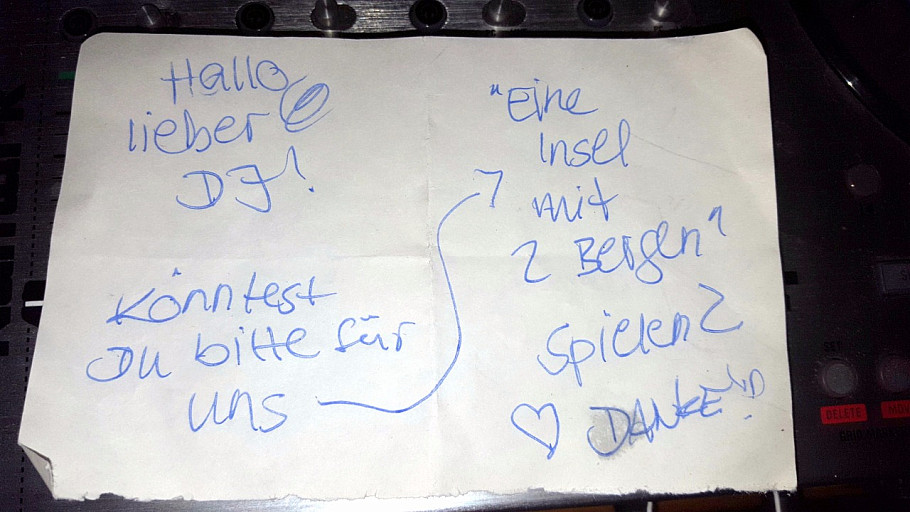 Hallo
lieber
DJ!
Könntest
Du bitte für
uns
"Eine
Insel
mit
2 Bergen"
spielen?
DANKE!
DELETE